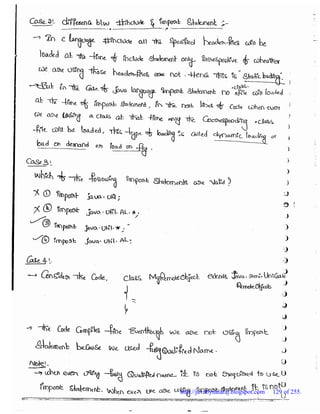 Case 2:- difference b/w #include & import statement :-
→ In c language #include all the specified header-files will be
loaded at the time of include statement only, irrespective of whether
we are using those header-files or not. Hence this is "Static loading".
→ But in the case of java language import statement no .class file will be loaded
at the time of import statement, in the next lines of code when ever
we are using a class at that time only the corresponding .class
file will be loaded, this type of loading is called dynamic loading or
load on demand or load on fly.
Case 3:
Which of the following import statements are valid?
X ① import java.util;
X ② import java.util.AL.*;
✓③ import java.util.*;
✓④ import java.util.AL;
Case 4:
→ Consider the Code, class MyRemoteObject extends java.rmi.UnicastRemoteObject
{
}
→ the Code Compiles fine Eventhough we are not using import
statement because we used fully Qualified Name.
Note:
→ when ever using fully Qualified name it is not required to use
import statement. when ever we are using import statement it is not
javabynataraj.blogspot.com 129 of 255.